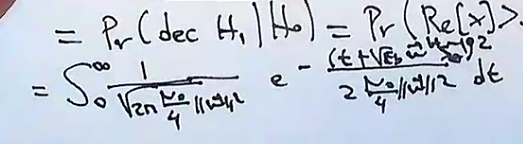 = Pr(dec H₁ | H₀) = Pr(Re[x] >
= ∫₀^∞ 1/√(2π N₀/4 ‖w‖²) e^-(t + √Eb w^H)²/(2 N₀/4 ‖w‖²) dt